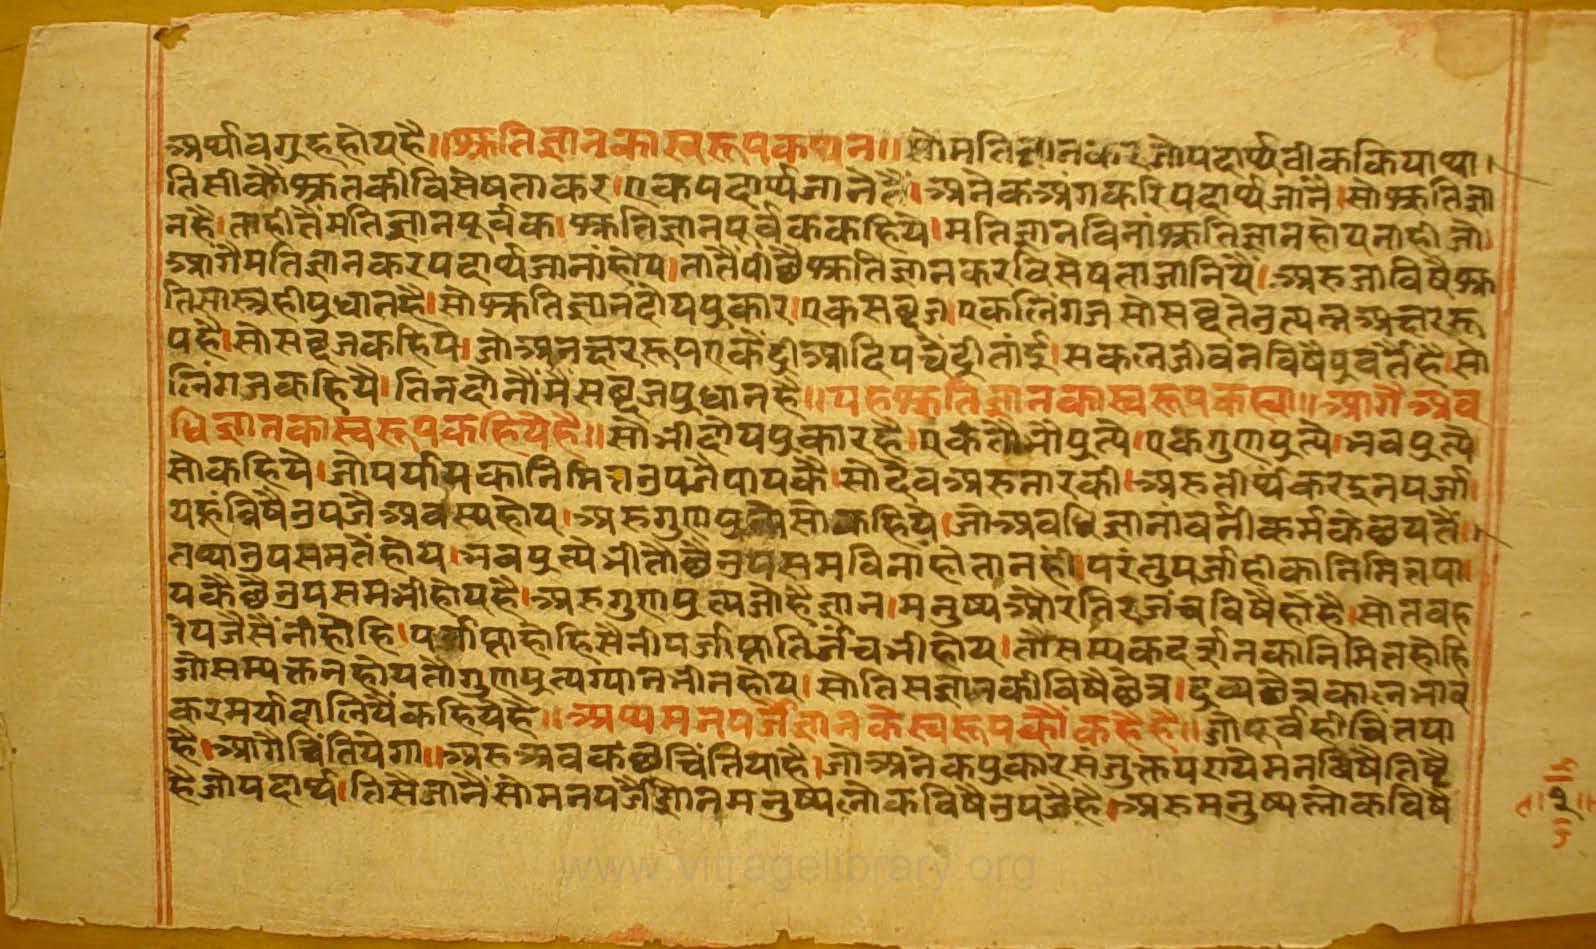 अर्थावग्रहहोयहै॥श्रुतिज्ञानकास्वरूपकथन॥सोमतिज्ञानकरजोपदार्थठीककियाथा।
तिसीकौश्रुतकीविसेषताकर।एकपदार्थजानेतैं।अनेकअंगकरिपदार्थजांनै।सोश्रुतिज्ञा
नहै।ताहीतैमतिज्ञानपूर्वक।श्रुतिज्ञानपूर्वककहिये।मतिज्ञानविनांश्रुतिज्ञानहोयनाही।जो।
आगैमतिज्ञानकरपदार्थजानांहोय।तातैंपीछैश्रुतिज्ञानकरविसेषताजानियैं।अरुजाविषैश्रु
तिसास्त्रहीप्रधानहै।सोश्रुतिज्ञानदोयप्रकार।एकसब्दज।एकलिंगजसोसब्दतेउत्पन्नअक्षररू
पहै।सोसब्दजकहिये।जोअनक्षररूपएकेंद्रीआदिपचेंद्रीतांई।सकलजीवनविषैप्रवर्तैहै।सो
लिंगजकहियै।तिनदोनौंमैंसब्दजप्रधानहै॥यहश्रुतिज्ञानकास्वरूपकह्या॥आगैअव
धिज्ञानकास्वरूपकहियेहै॥सोभीदोयप्रकारहै।एकतौभौप्रत्ये।एकगुणप्रत्ये।भवप्रत्ये
सोकहियै।जोपर्यायकानिमित्तउपजैपायकै।सोदेवअरुनारकी।अरुतीर्थंकरइनपर्जा।
यहांविषैउपजैअवस्यहोय।अरुगुणप्रत्येसोकहिये।जोअवधिज्ञानांवर्नीकर्मकेछयतैं।
तथाउपसमतैंहोय।भवप्रत्येभीतौछैउपसमविनांहोतानहीं।परंतुपर्जाहीकानिमित्तपा।
यकैछैउपसमभीहोयहै।अरुगुणप्रत्यजोहैज्ञान।मनुष्यऔरतिरजंचविषैहोहै।सोतवह
।येजैसैंनीहोहि।पर्जाप्ताहोहिसैनीपर्जाप्तातिर्जंचभीहोय।तौसम्यकदर्शनकानिमित्तहोहि
जोसम्यक्तनहोयतौगुणप्रत्यग्यानभीनहोय।सोतिसज्ञानकीविषैछेत्र।द्रव्यछेत्रकालभाव
करमर्यादालियैंकहियेहै॥अथमनपर्जैज्ञानकेस्वरूपकौंकहेहै॥जोपूर्वहीचिंतया
है।आगैचिंतियेगा॥अरुअवकछूचिंतियाहै।जोअनेकप्रकारसंजुक्तपरायेमनविषैतिष्टै
हेजोपदार्थ।तिसैजानैंसोमनपर्जैज्ञानमनुष्यलोकविषैउपजैहै।अरुमनुष्यलोकविषै
www.vitragelibrary.org